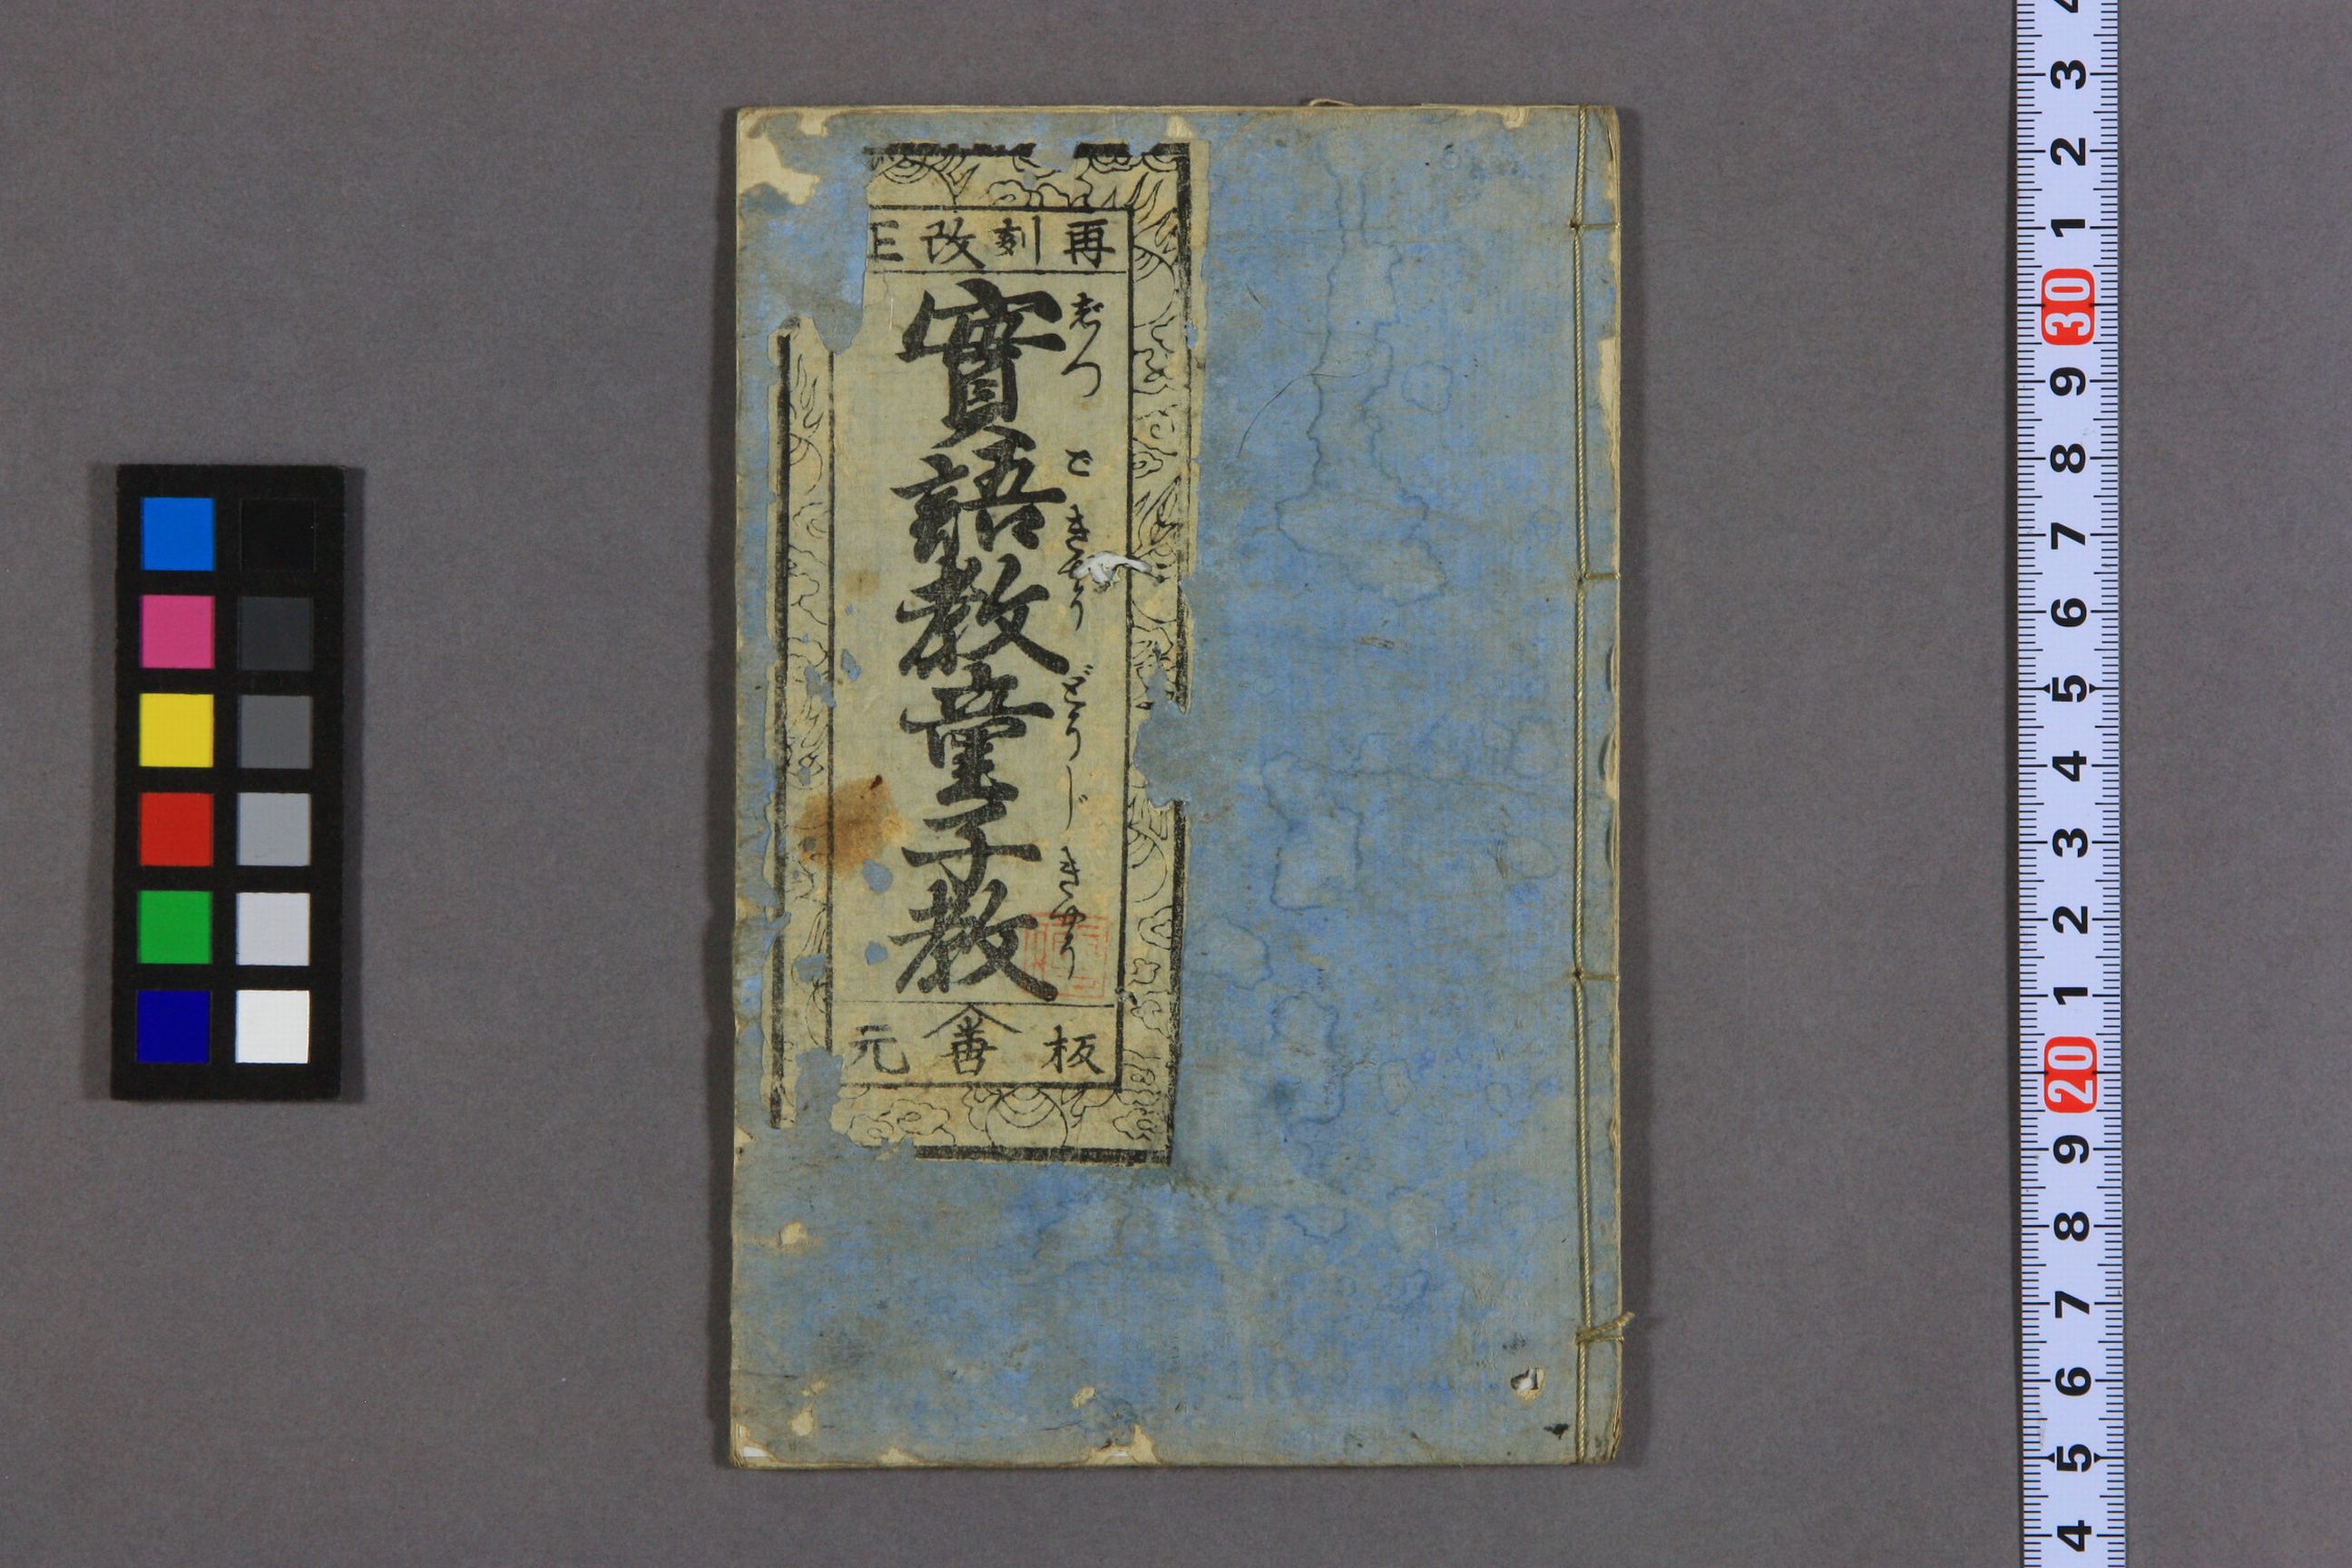 再刻改正
實語教童子教
じつ ご きやう どう じ きやう
板 善 元
4 3 2 1 30 9 8 7 6 5 4 3 2 1 20 9 8 7 6 5 4